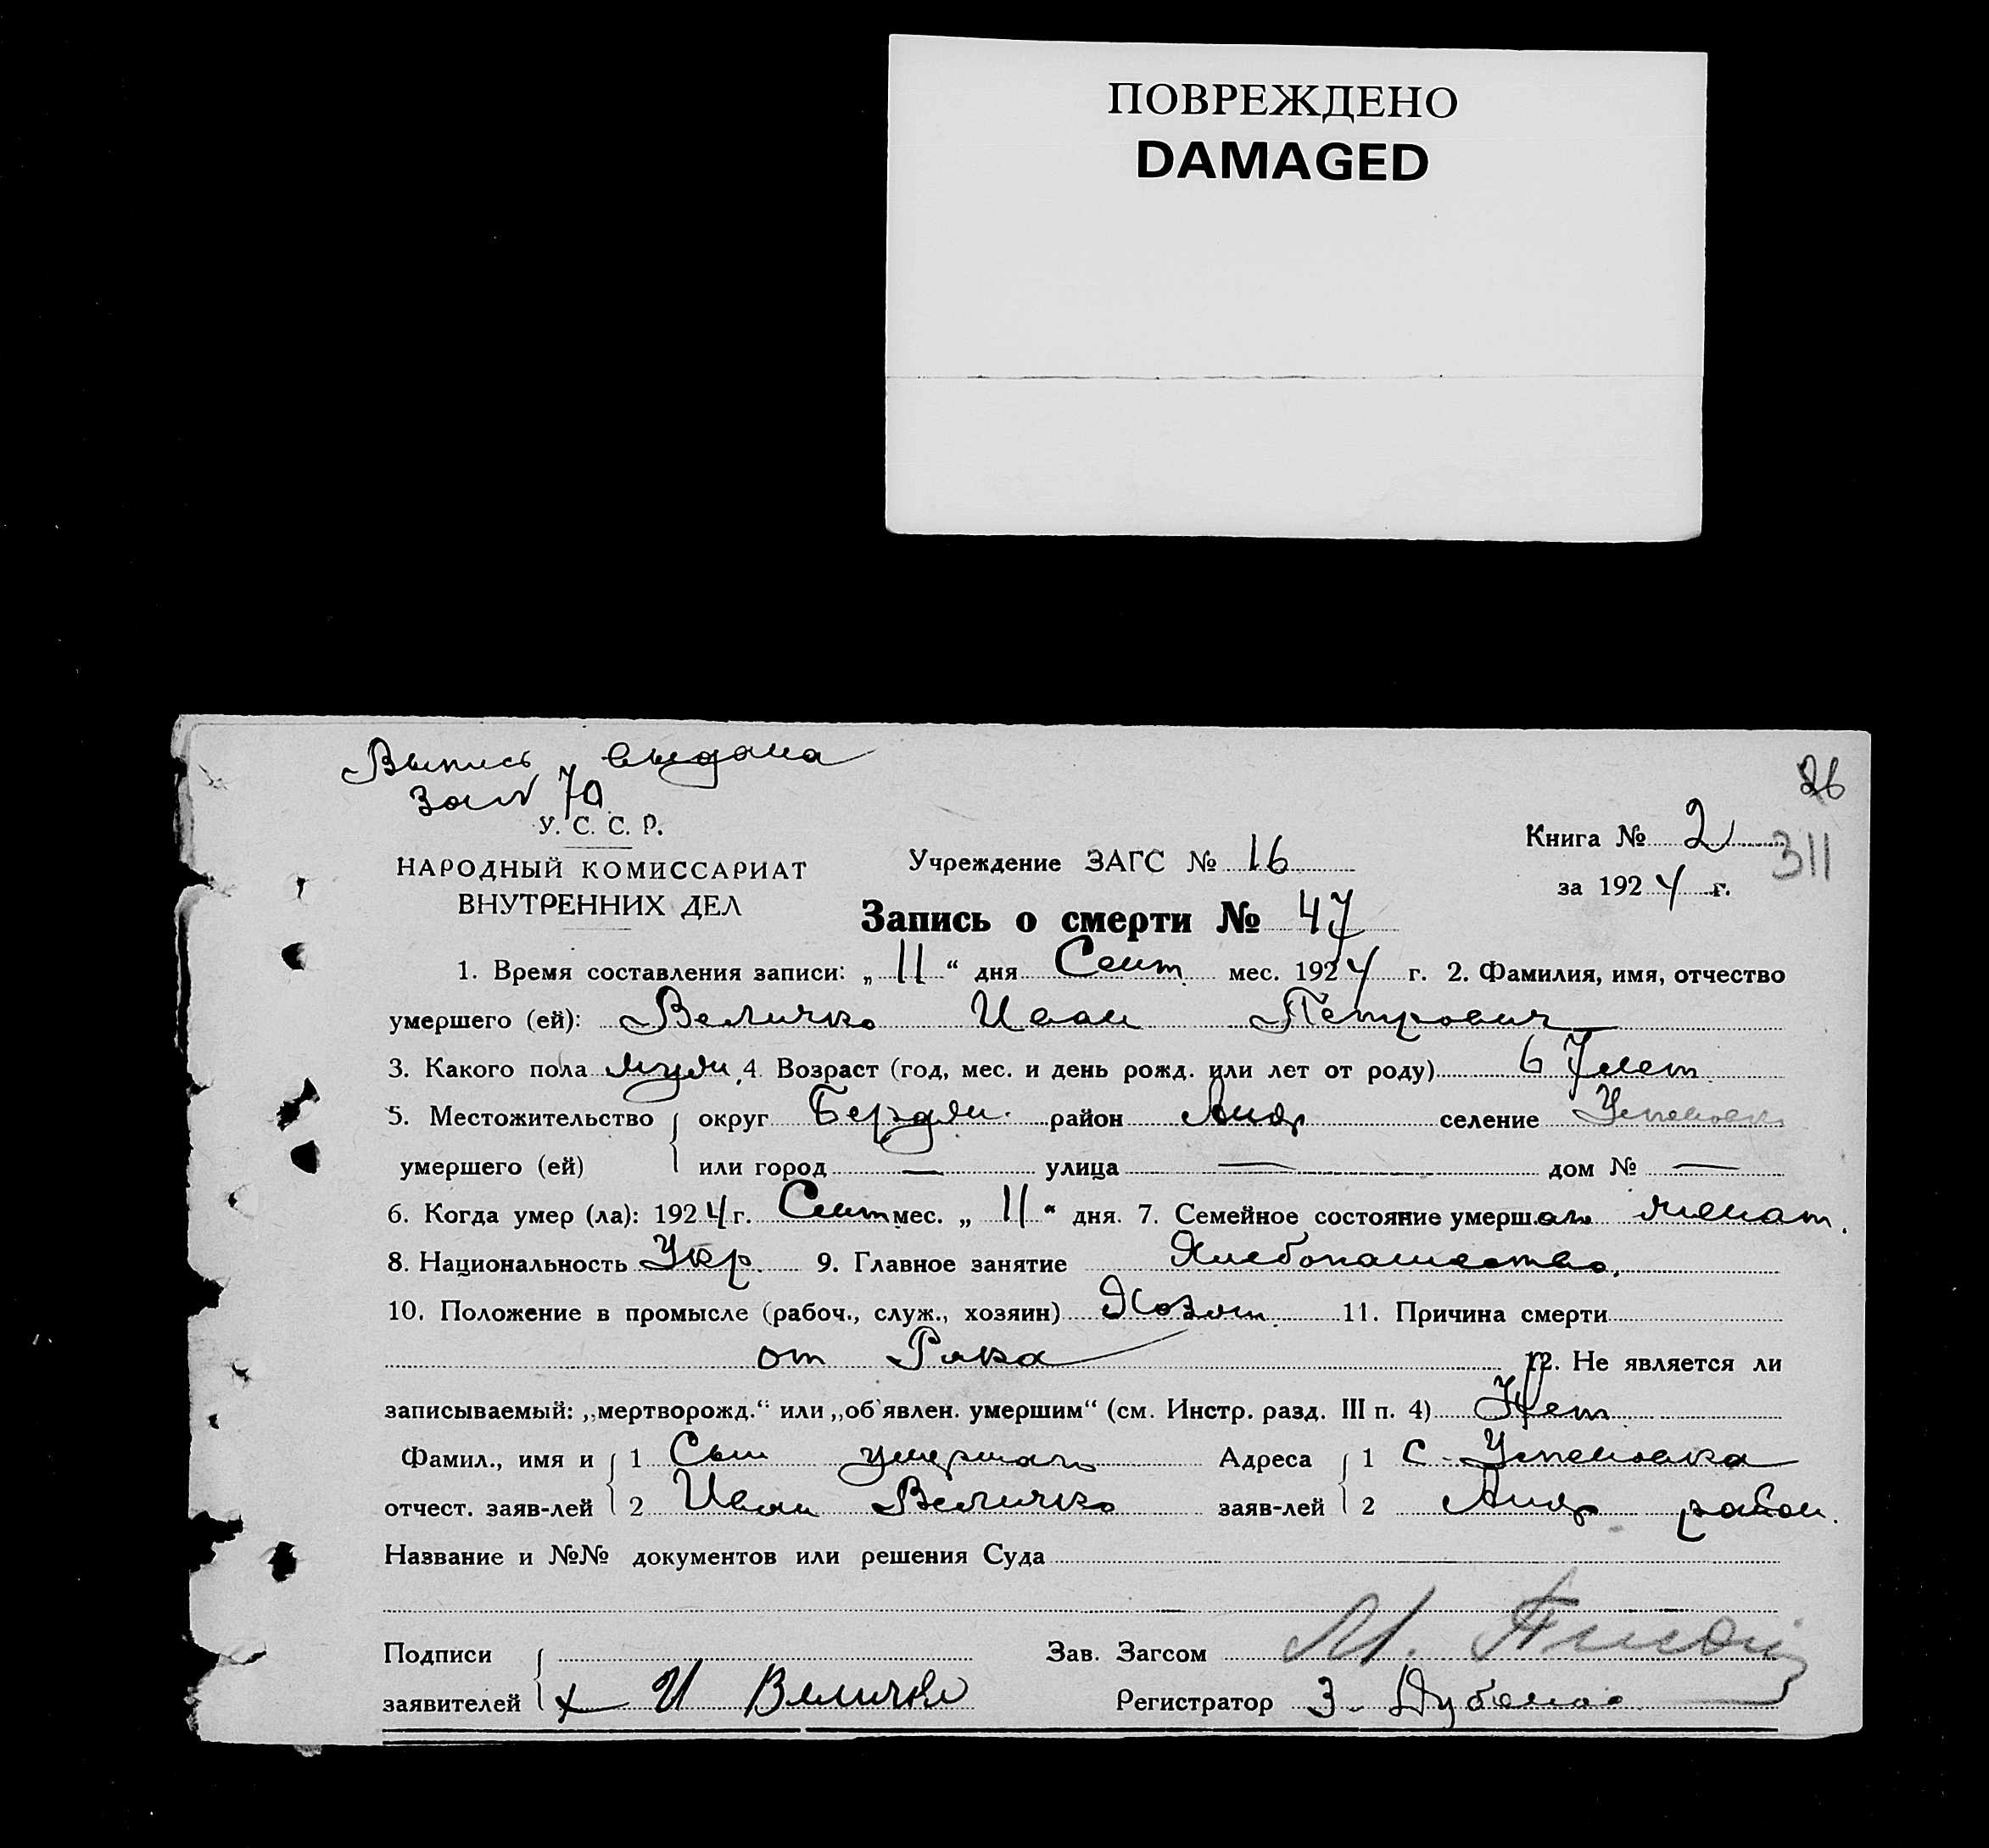 ПОВРЕЖДЕНО
DAMAGED
Выпись выдана
за № 70
26
У. С. С. Р.
НАРОДНЫЙ КОМИССАРИАТ
ВНУТРЕННИХ ДЕЛ
Учреждение ЗАГС № 16
Книга № 2
311
за 1924 г.
Запись о смерти № 47
1. Время составления записи: „ 11 “ дня Сент. мес. 1924 г. 2. Фамилия, имя, отчество
умершего (ей): Величко Иван Петрович
3. Какого пола мужч. 4. Возраст (год, мес. и день рожд. или лет от роду) 67 лет.
5. Местожительство округ Бердян. район Андр селение Успеновка
умершего (ей) или город — улица — дом № —
6. Когда умер (ла): 1924 г. Сент мес. „ 11 “ дня. 7. Семейное состояние умершаго женат.
8. Национальность Укр. 9. Главное занятие Хлебопашество.
10. Положение в промысле (рабоч., служ., хозяин) Хозяин. 11. Причина смерти
от Рака 12. Не является ли
записываемый: „мертворожд.“ или „об'явлен. умершим“ (см. Инстр. разд. III п. 4) Нет
Фамил., имя и 1 Сын умершаго Адреса 1 С. Успеновка
отчест. заяв-лей 2 Иван Величко заяв-лей 2 Андр район.
Название и №№ документов или решения Суда
Подписи Зав. Загсом М.
заявителей И Величко Регистратор З.